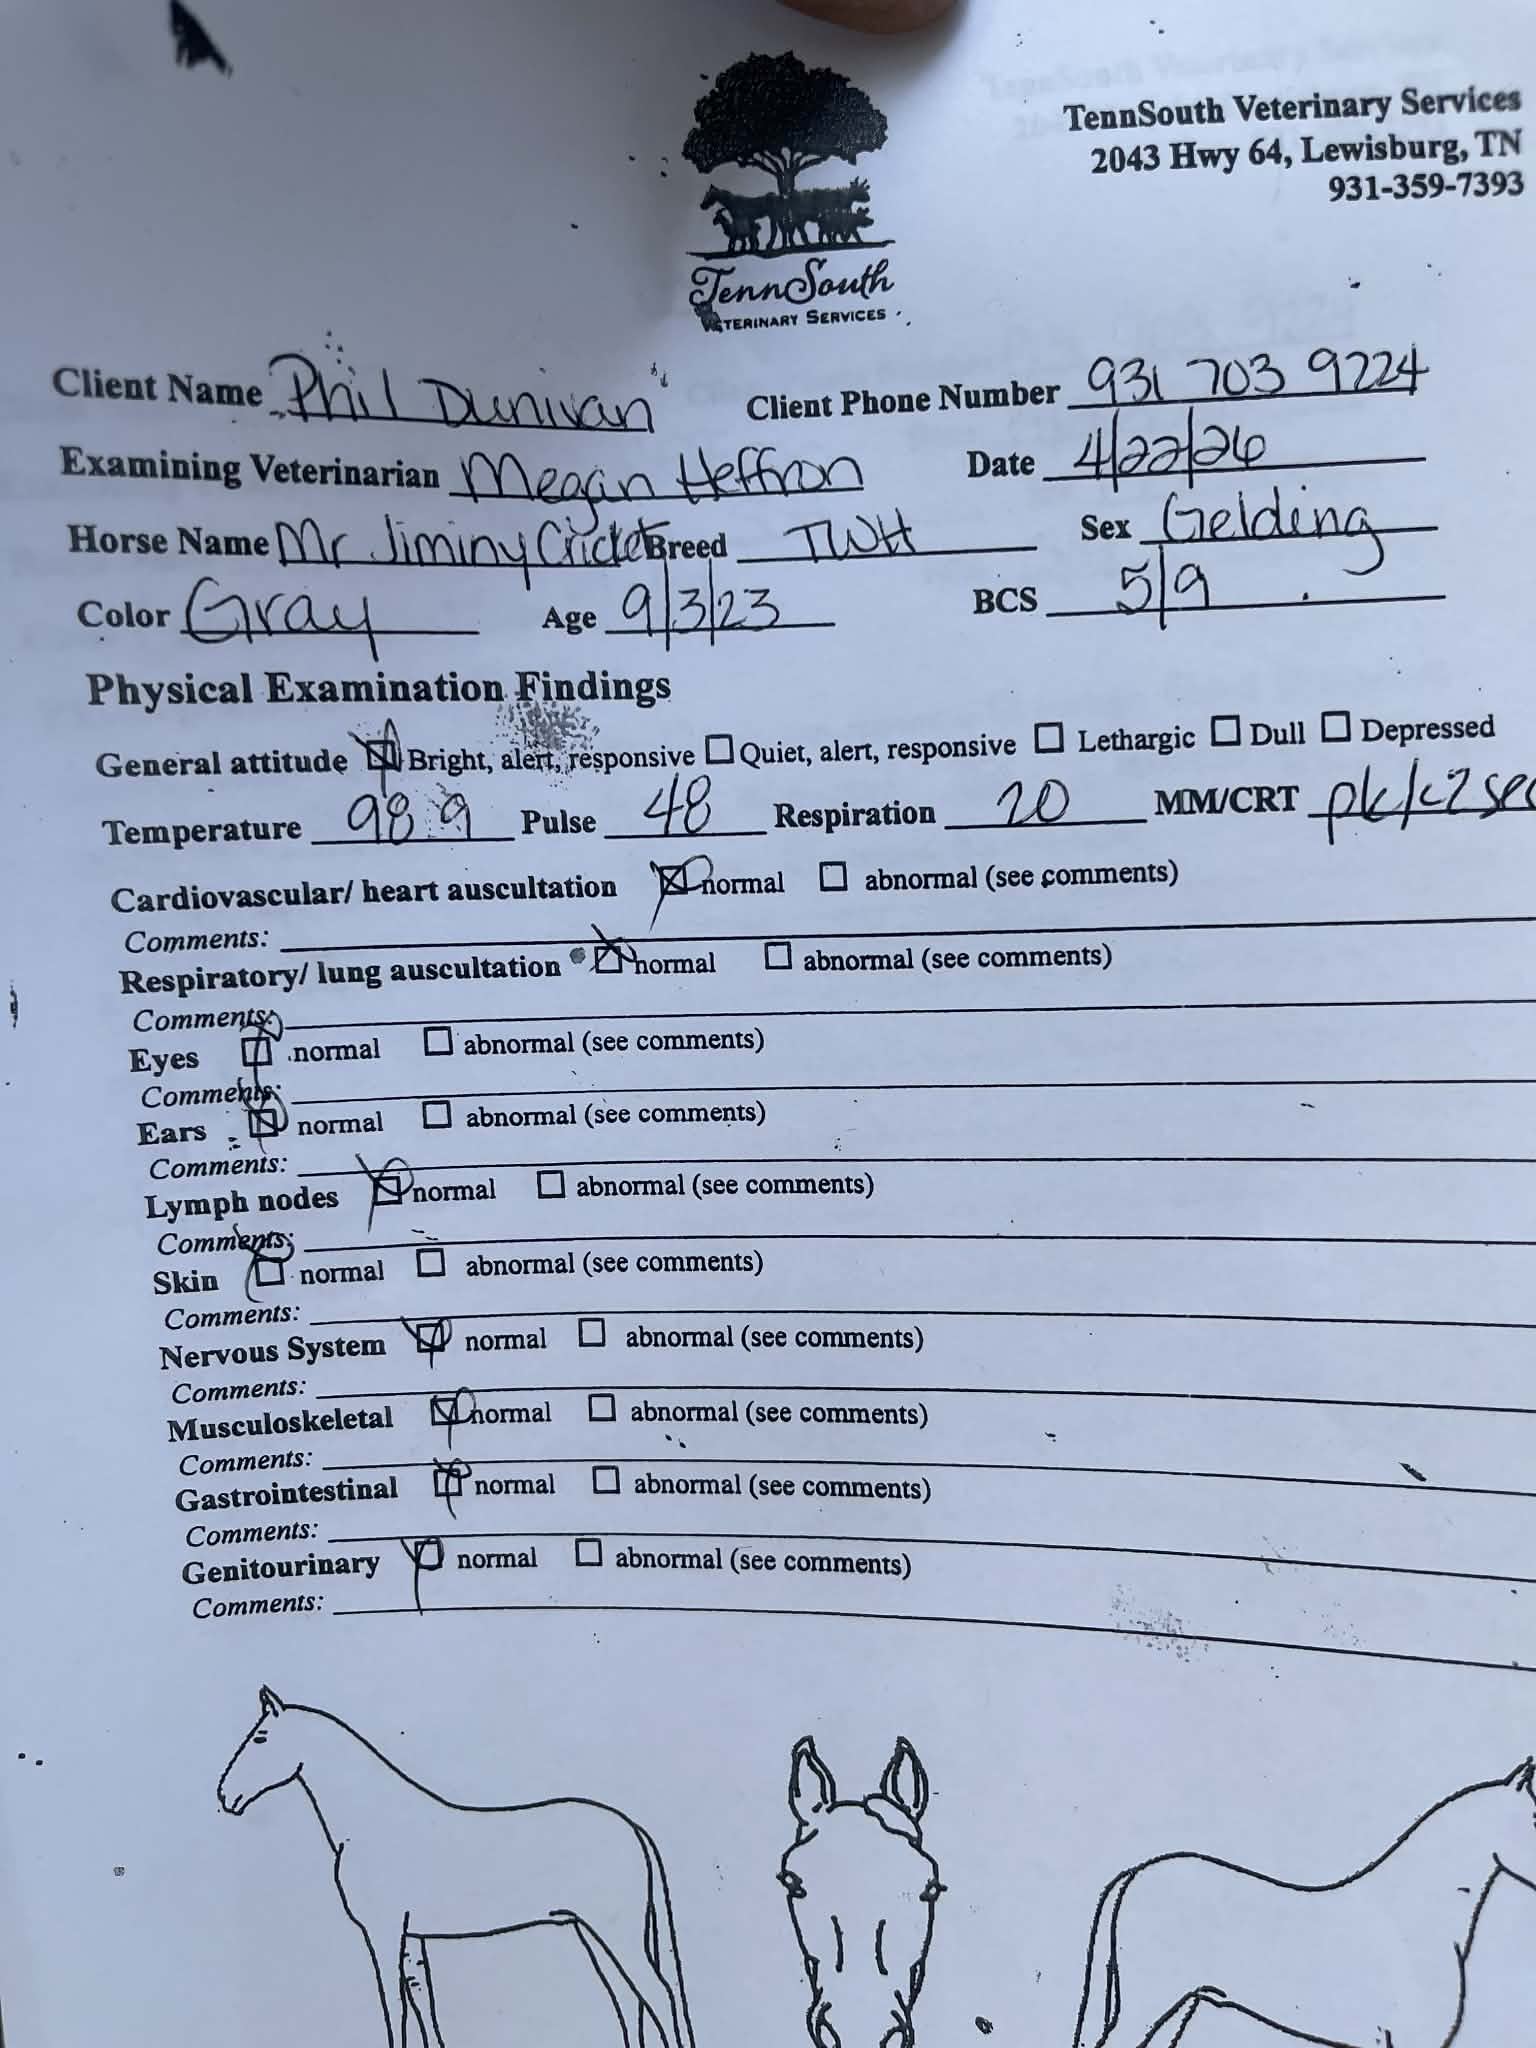 TennSouth Veterinary Services
2043 Hwy 64, Lewisburg, TN
931-359-7393
TennSouth
VETERINARY SERVICES
Client Name Phil Dunivan Client Phone Number 931 703 9224
Examining Veterinarian Megan Heffron Date 4/22/26
Horse Name Mr Jiminy Cricket Breed TWH Sex Gelding
Color Gray Age 9/3/23 BCS 5/9
Physical Examination Findings
General attitude ☒ Bright, alert, responsive ☐ Quiet, alert, responsive ☐ Lethargic ☐ Dull ☐ Depressed
Temperature 98.9 Pulse 48 Respiration 20 MM/CRT pk/<2 sec
Cardiovascular/ heart auscultation ☒ normal ☐ abnormal (see comments)
Comments:
Respiratory/ lung auscultation ☒ normal ☐ abnormal (see comments)
Comments:
Eyes ☒ normal ☐ abnormal (see comments)
Comments:
Ears ☒ normal ☐ abnormal (see comments)
Comments:
Lymph nodes ☒ normal ☐ abnormal (see comments)
Comments:
Skin ☒ normal ☐ abnormal (see comments)
Comments:
Nervous System ☒ normal ☐ abnormal (see comments)
Comments:
Musculoskeletal ☒ normal ☐ abnormal (see comments)
Comments:
Gastrointestinal ☒ normal ☐ abnormal (see comments)
Comments:
Genitourinary ☒ normal ☐ abnormal (see comments)
Comments: